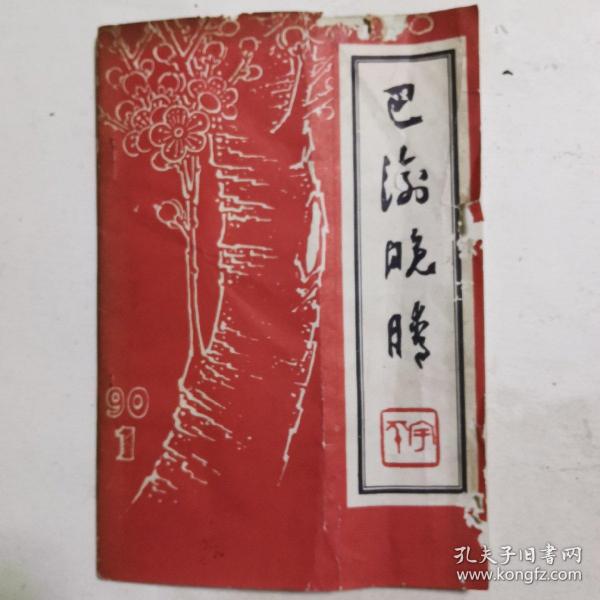 巴渝晚腾
90
1
孔夫子旧書网
www.kongfz.com